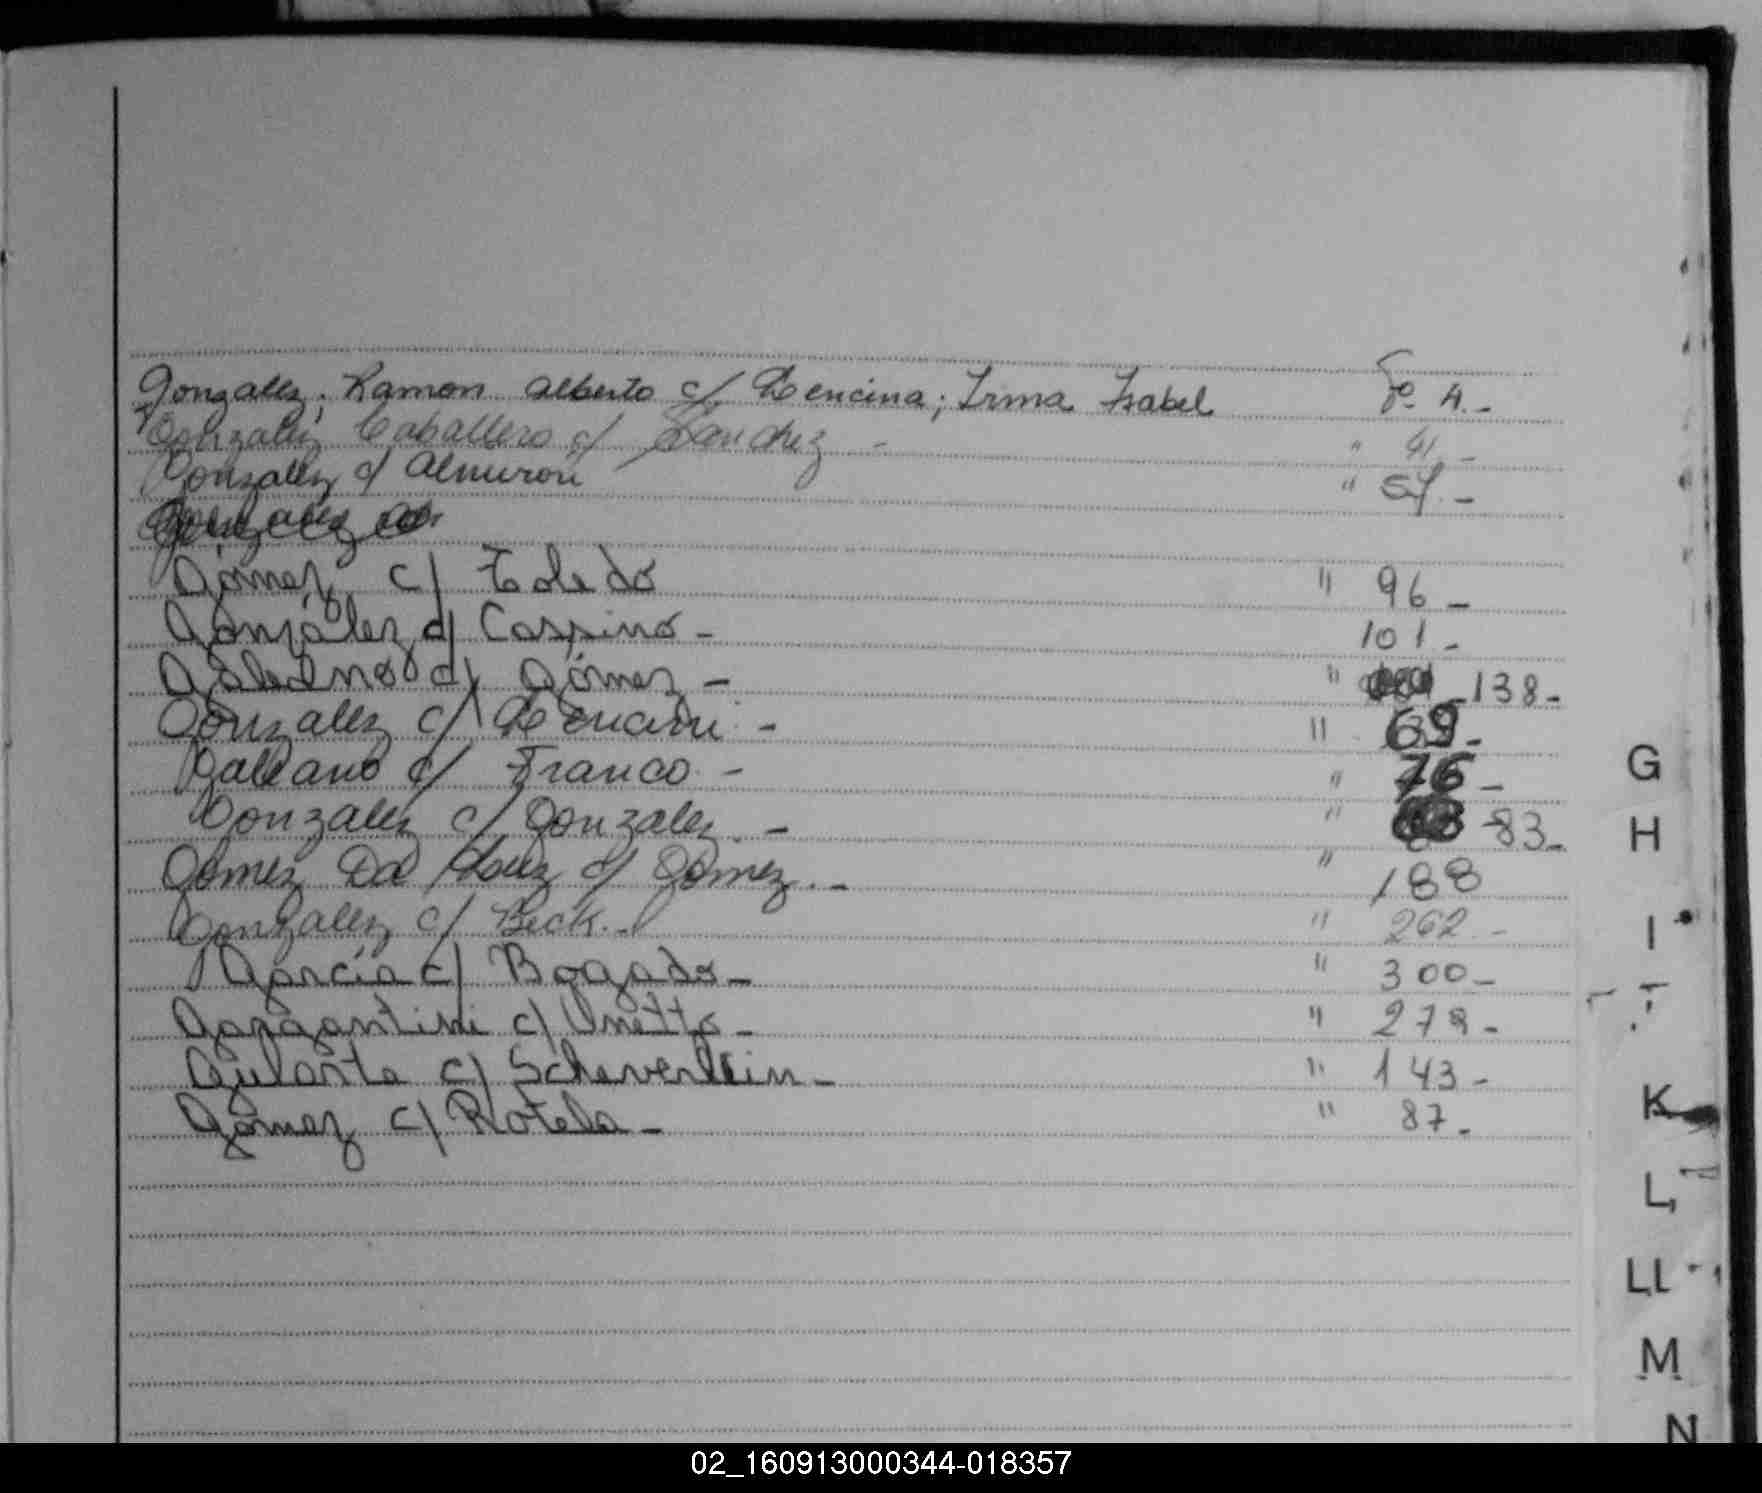 Gonzalez; Ramon Alberto c/ Lencina; Irma Isabel Fº 4.-
Gonzalez Caballero c/ Sanchez - " 41 -
Gonzalez c/ Almiron " 57.-
Gonzalez
Gómez c/ Toledo " 96 -
González c/ Cospino - 101 -
Galeano c/ Gómez - " 138 -
Gonzalez c/ - " 69 -
Galeano c/ Franco - " 76 -
Gonzalez c/ Gonzalez - " 83 -
Gomez Da c/ Gomez. - " 188
Gonzalez c/ Beck. - " 262 -
García c/ Bogado - " 300 -
Gargantini c/ Onetto - " 278 -
c/ - " 143 -
Gómez c/ Rotela - " 87 -
G
H
I
K
L
LL
M
N
02_160913000344-018357